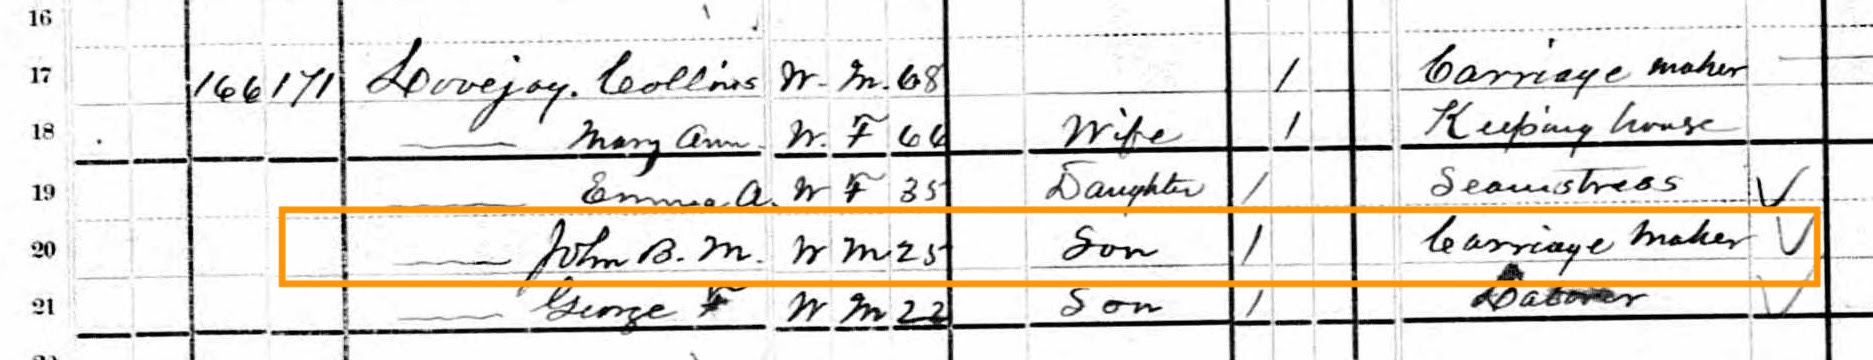 16
17 166 171 Lovejoy. Collins W. M. 68 / Carriage maker
18 — Mary Ann. W. F 66 Wife / Keeping house
19 — Emma A. W F 35 Daughter / Seamstress ✓
20 — John B. M. W M 25 Son / Carriage Maker ✓
21 — George F W M 22 Son / Laborer ✓